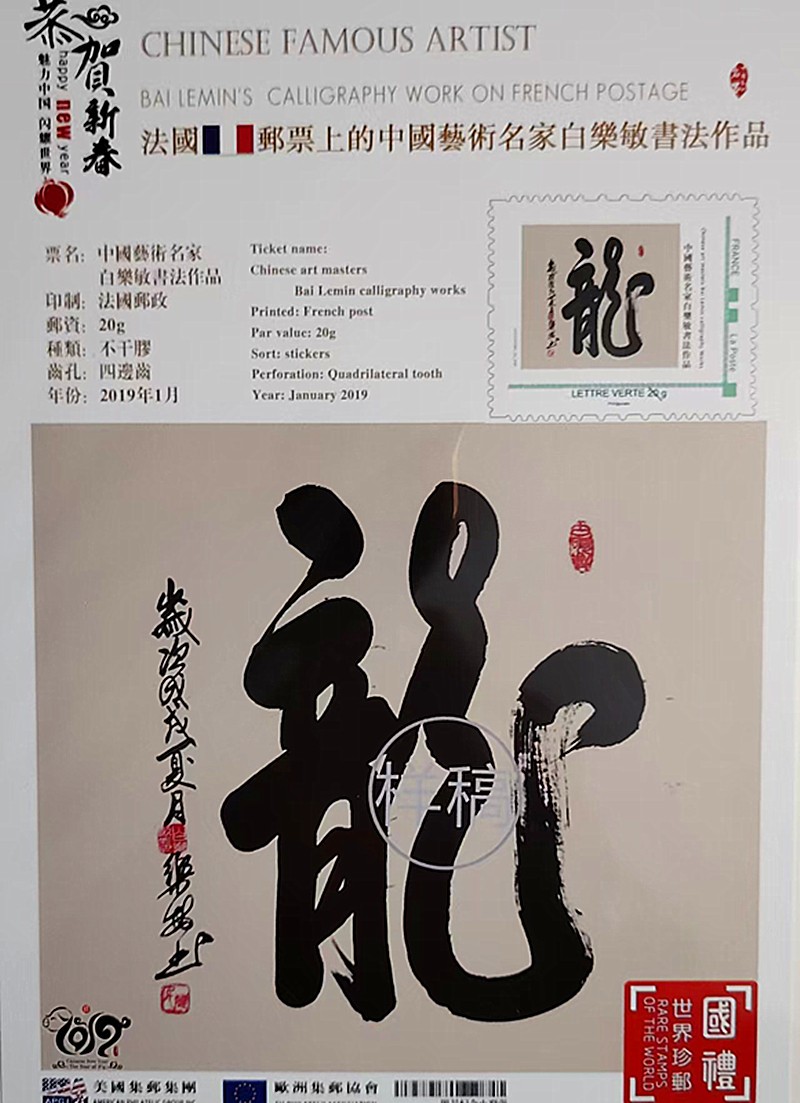 恭賀新春
happy new year
魅力中国 闪耀世界
CHINESE FAMOUS ARTIST
BAI LEMIN'S CALLIGRAPHY WORK ON FRENCH POSTAGE
法國郵票上的中國藝術名家白樂敏書法作品
票名：中國藝術名家
白樂敏書法作品
印制：法國郵政
郵資：20g
種類：不干膠
齒孔：四邊齒
年份：2019年1月
Ticket name:
Chinese art masters
Bai Lemin calligraphy works
Printed: French post
Par value: 20g
Sort: stickers
Perforation: Quadrilateral tooth
Year: January 2019
龍
中國藝術名家白樂敏書法作品
Chinese art masters Bai Lemin calligraphy works
FRANCE
La Poste
LETTRE VERTE 20 g
龍
歲次戊戌夏月
樂敏书
样稿
2019
國禮
世界珍郵
RARE STAMPS
OF THE WORLD
美國集郵集團
AMERICAN PHILATELIC GROUP INC
歐洲集郵協會